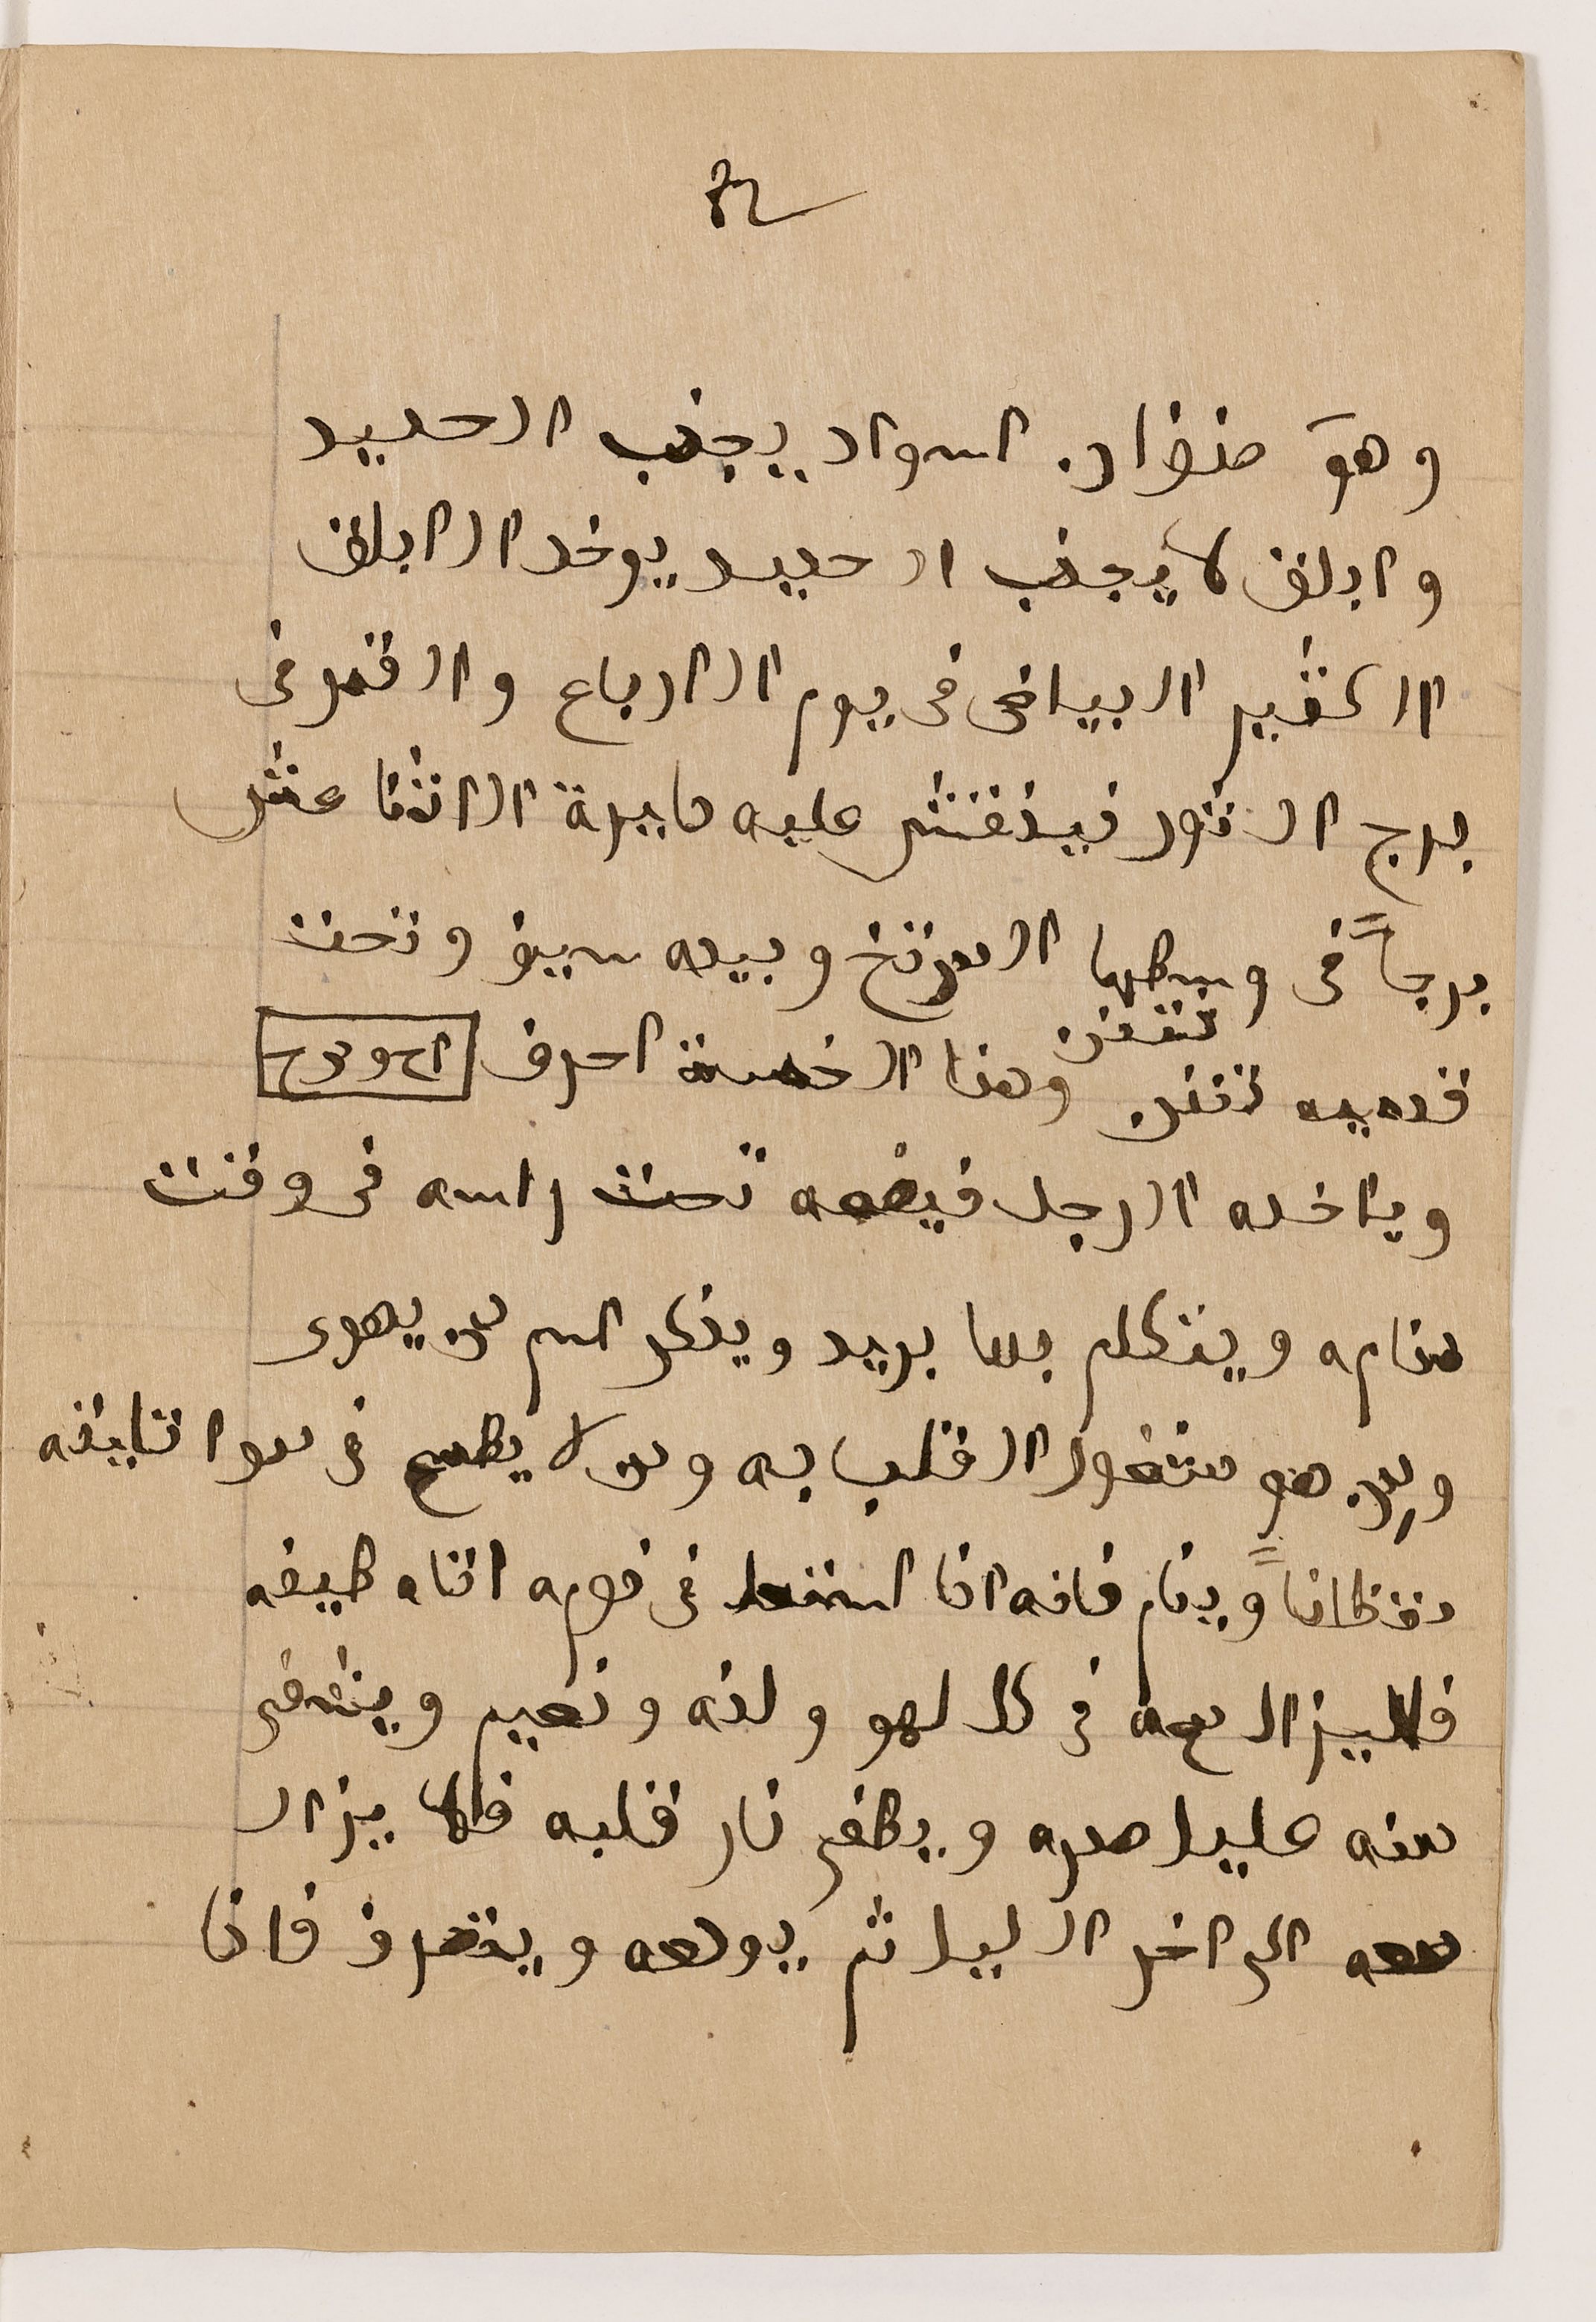 وهو صنفان. اسود يجذب الحديد
وابلق لا يجذب الحديد يوخد الابلق
الكثير البياض فى يوم الاربعاء والقمر فى
برج الثور فينقش عليه دايرة الاثنا عشر
برجاً فى وسطها المريخ وبيده سيف وتحت
قدميه تنين وهذا الخمسة احرف
وياخده الرجل فيضعه تحت راسه فى وقت
منامه ويتكلم بما يريد ويذكر اسم من يهوى
ومن هو مشغول القلب به ومن لا يطمع فى
يقظاناً وينام فانه اذا فى نومه اتاه طيفه
فلا يزال معه فى كل لهو ولذه ونعيم
منه ويطفى نار قلبه فلا يزال
معه الى اخر الليل ثم يودعه وينصرف فاذا